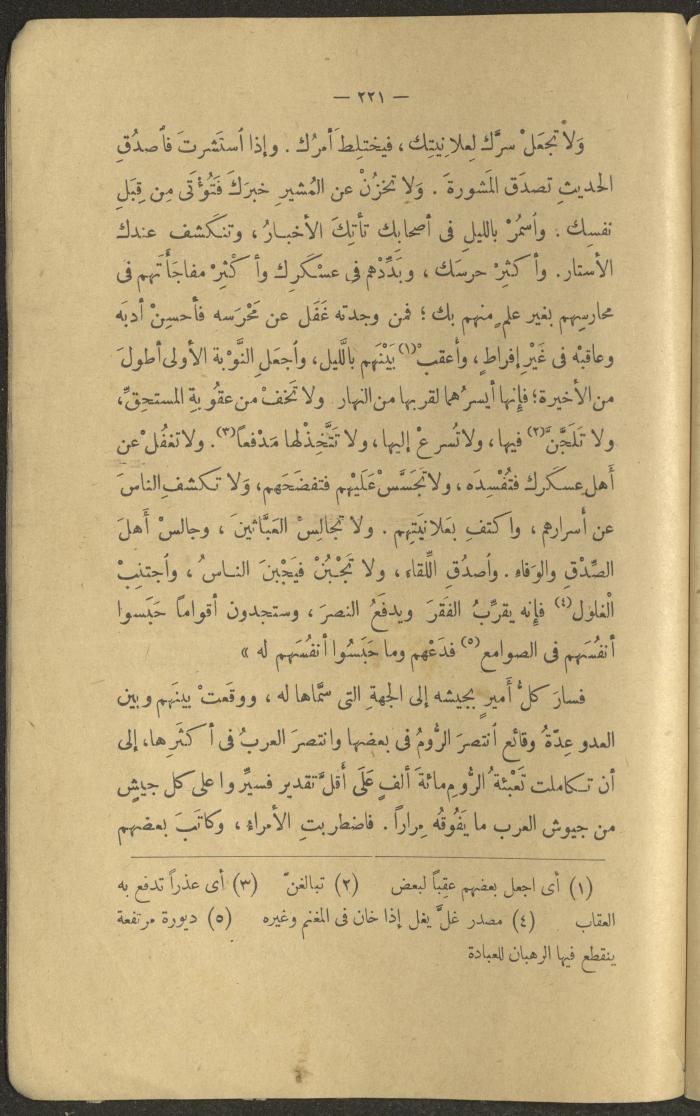 — ٢٢١ —
وَلاَ تَجعَلْ سرَّك لِعلانِيَتِك ، فيختلِطَ أمرُك . وإذا ٱستَشرتَ فٱصدُقِ
الحديثِ تصدَق المَشورةَ . وَلا تخزُنْ عن المُشيرِ خبرَكَ فَتُؤْتَى مِن قِبَلِ
نفسِك . وٱسمُرْ بالليلِ فى أصحابِك تأتِكَ الأخبارُ ، وتنكَشف عندك
الأستار . وأكثِرْ حرسَك ، وبَدِّدْهم فى عسْكَرِك وأكْثِرْ مفاجَأَتهم فى
محارسِهم بغير علمٍ منهم بك ؛ فمن وجدته غَفَل عن مَحْرَسه فأحسِنْ أدبَه
وعاقبْه فى غَيْرِ إفراطٍ ، وأَعقِبْ (١) بَيْنَهم بالَّليل ، وٱجعَلِ النَّوْبة الأولى أطولَ
من الأخيرة ؛ فإنها أيسرُهما لقربها من النهار ولا تَخفْ من عقُوبةِ المستحِقِّ،
ولا تَلَجَّنَّ (٢) فيها ، ولا تُسرعْ إليها ، ولا تَتَّخِذْلها مَدْفعاً (٣) . ولا تغفُلْ عن
أَهلِ عسكَرك فتُفْسِدَه ، ولا تَجَسَّسْ عَلَيْهم فتفضَحَهم، وَلا تكشفِ الناسَ
عن أسرارِهم ، واكتفِ بعَلانيَتِهم . ولا تجالِسْ العَبَّاثينَ ، وجالسْ أَهلَ
الصِّدْقِ والوَفاءِ . وٱصدُقِ اللِّقاء ، ولا تَجْبُنْ فيَجْبنَ الناسُ ، وٱجتنِبْ
الْغلولَ (٤) فإنه يقرِّبُ الفَقرَ ويدفَعُ النصرَ ، وستجدون أقواماً حَبَسوا
أنفُسَهم فى الصوامع (٥) فدَعْهم وما حَبَسُوا أنفُسَهم له »
فسارَ كلُّ أَميرٍ بجيشه إلى الجهةِ التى سمَّاها له ، ووقَعتْ بينَهم وبين
العدو عِدّةُ وقائع ٱنتصرَ الرُّومُ فى بعضها وانتصرَ العربُ فى أكثَرِها، إلى
أن تكاملت تَعْبئةُ الرُّومِ مائةَ ألفٍ عَلَى أقلَّ تقدير فسيَّروا على كل جيشٍ
من جيوش العرب ما يَفُوقُه مِراراً . فاضطربتِ الأمراء ، وكاتَبَ بعضهم
(١) أى اجعل بعضهم عقِباً لبعض (٢) تبالغنّ (٣) أى عذراً تدفع به
العقاب (٤) مصدر غلَّ يغل إذا خان فى المغنم وغيره (٥) ديورة مرتفعة
ينقطع فيها الرهبان للعبادة